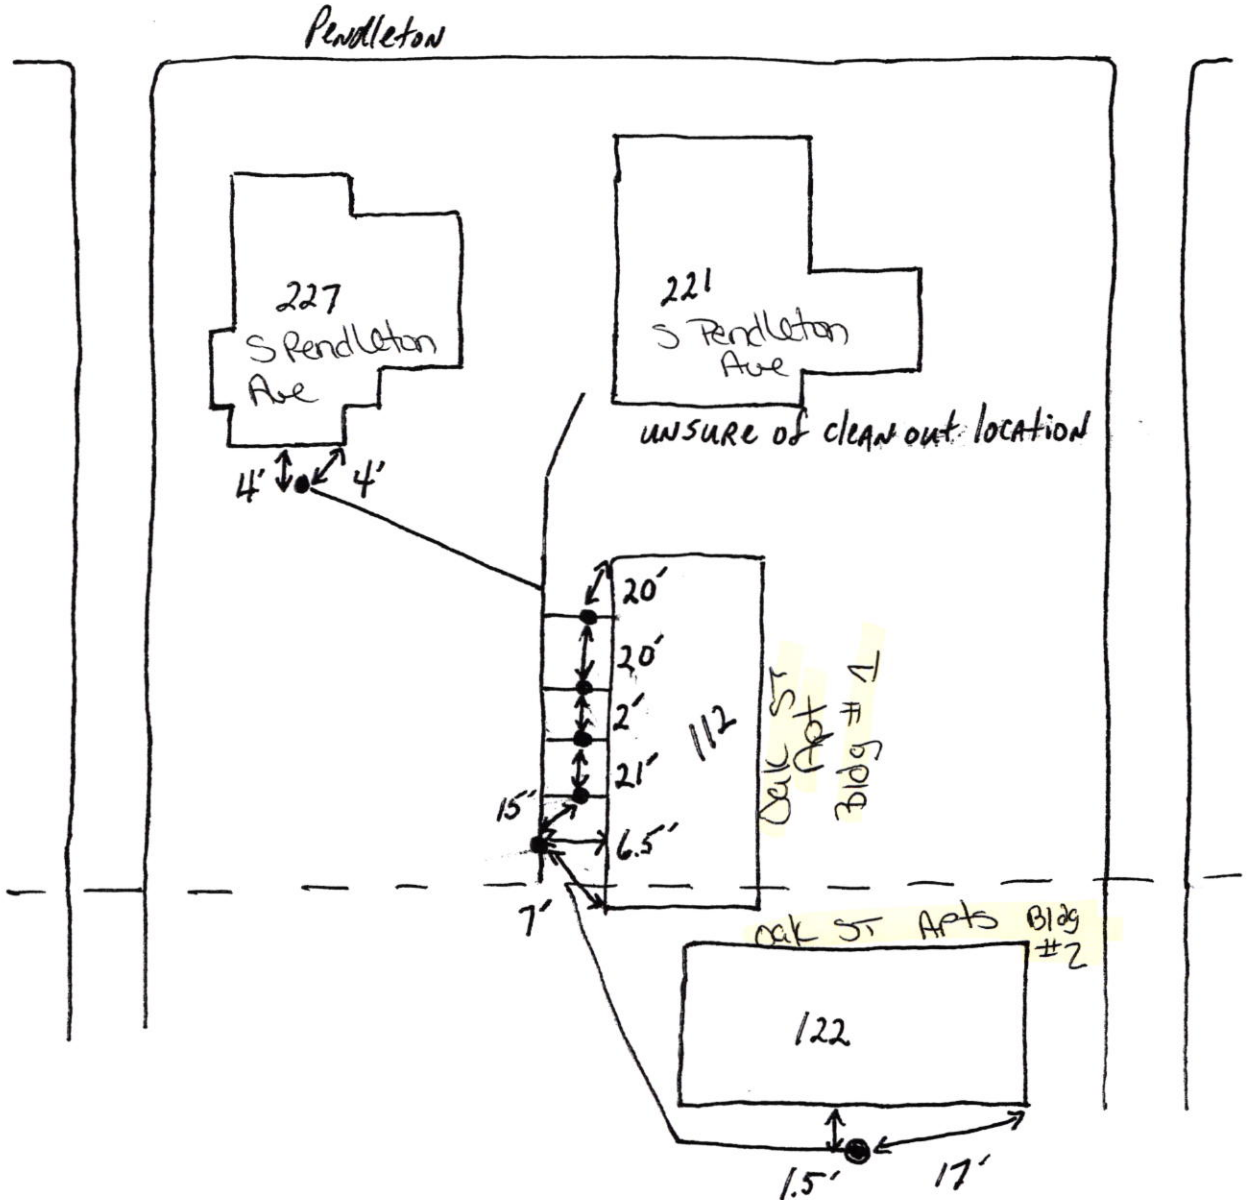 Pendleton
227
S Pendleton
Ave
221
S Pendleton
Ave
unsure of clean out location
4'
4'
20'
20'
2'
21'
15'
6.5'
7'
112
Oak ST
Apt
Bldg # 1
Oak ST Apts Bldg
#2
122
1.5'
17'